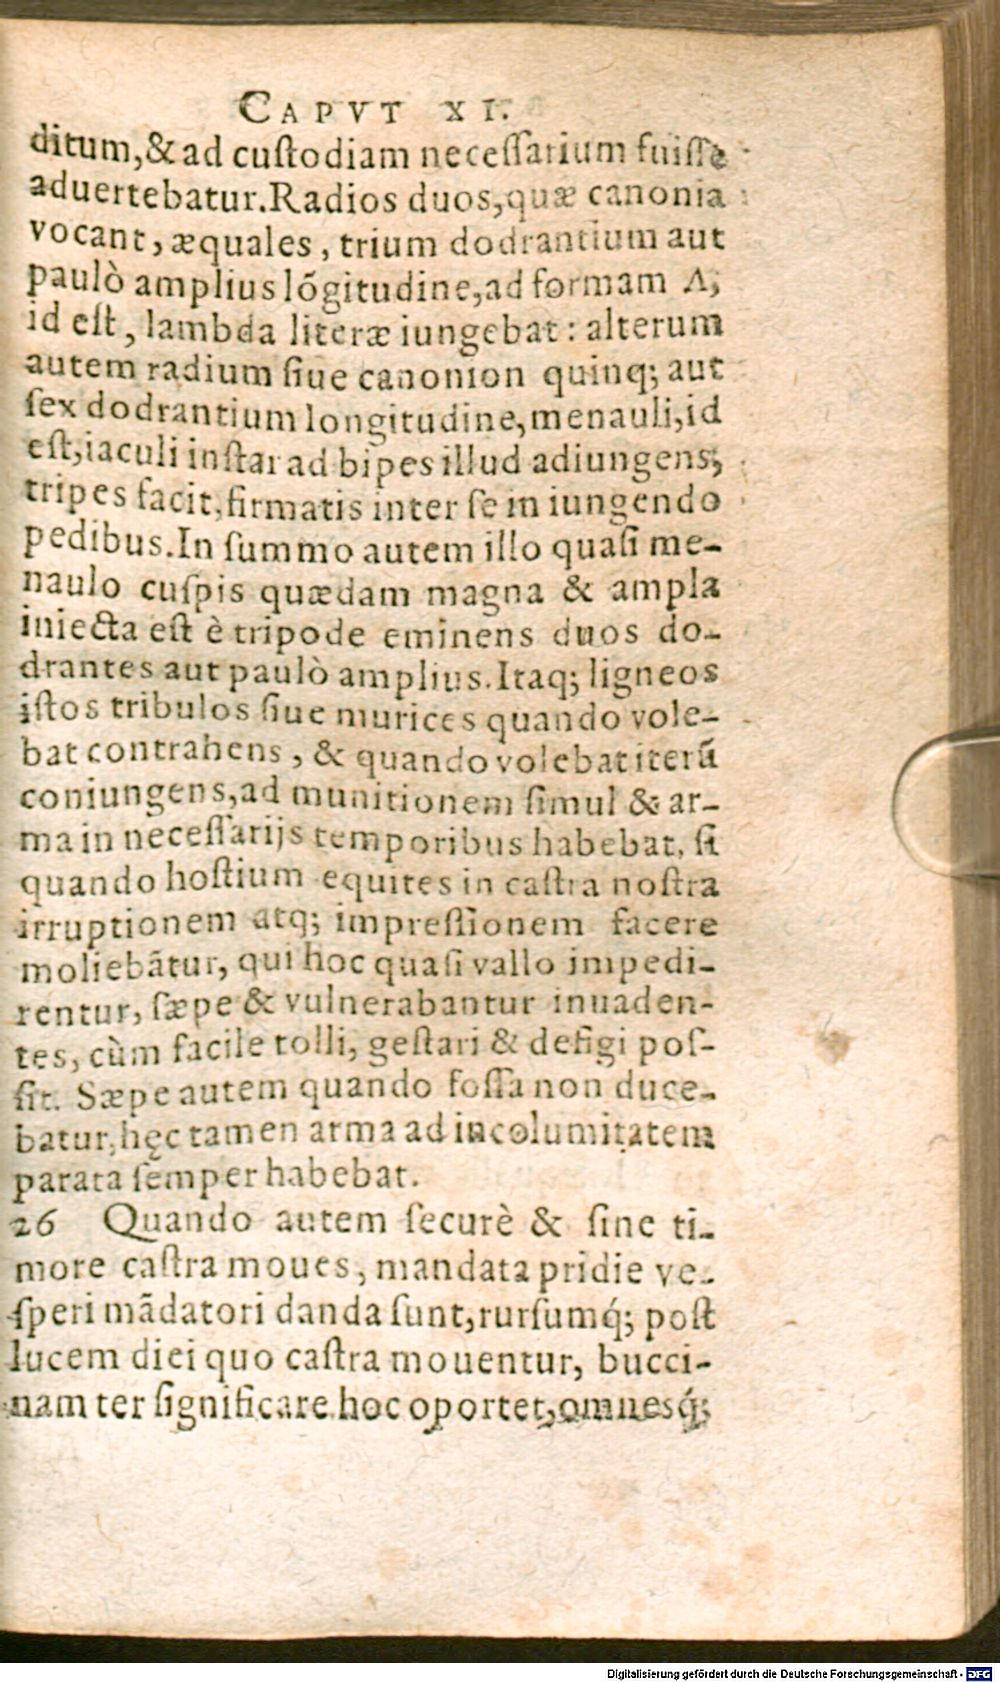 CAPVT XI.
ditum,& ad cuſtodiam neceſſarium fuiſſe
aduertebatur.Radios duos,quæ canonia
vocant, æquales, trium dodrantium aut
paulò amplius lõgitudine,ad formam Λ;
id eſt, lambda literæ iungebat: alterum
autem radium ſiue canonion quinq; aut
ſex dodrantium longitudine,menauli,id
eſt,iaculi inſtar ad bipes illud adiungens,
tripes facit,firmatis inter ſe in iungendo
pedibus.In ſummo autem illo quaſi me-
naulo cuſpis quædam magna & ampla
iniecta eſt è tripode eminens duos do-
drantes aut paulò amplius.Itaq; ligneos
iſtos tribulos ſiue murices quando vole-
bat contrahens, & quando volebat iterũ
coniungens,ad munitionem ſimul & ar-
ma in neceſſarijs temporibus habebat, ſi
quando hoſtium equites in caſtra noſtra
irruptionem atq; impreſſionem facere
moliebãtur, qui hoc quaſi vallo impedi-
rentur, ſæpe & vulnerabantur inuaden-
tes, cùm facile tolli, geſtari & defigi poſ-
ſit. Sæpe autem quando foſſa non duce-
batur,hęc tamen arma ad incolumitatem
parata ſemper habebat.
26 Quando autem ſecurè & ſine ti-
more caſtra moues, mandata pridie ve-
ſperi mãdatori danda ſunt,rurſumq́; poſt
lucem diei quo caſtra mouentur, bucci-
nam ter ſignificare hoc oportet,omnesq́;
Digitalisierung gefördert durch die Deutsche Forschungsgemeinschaft - DFG